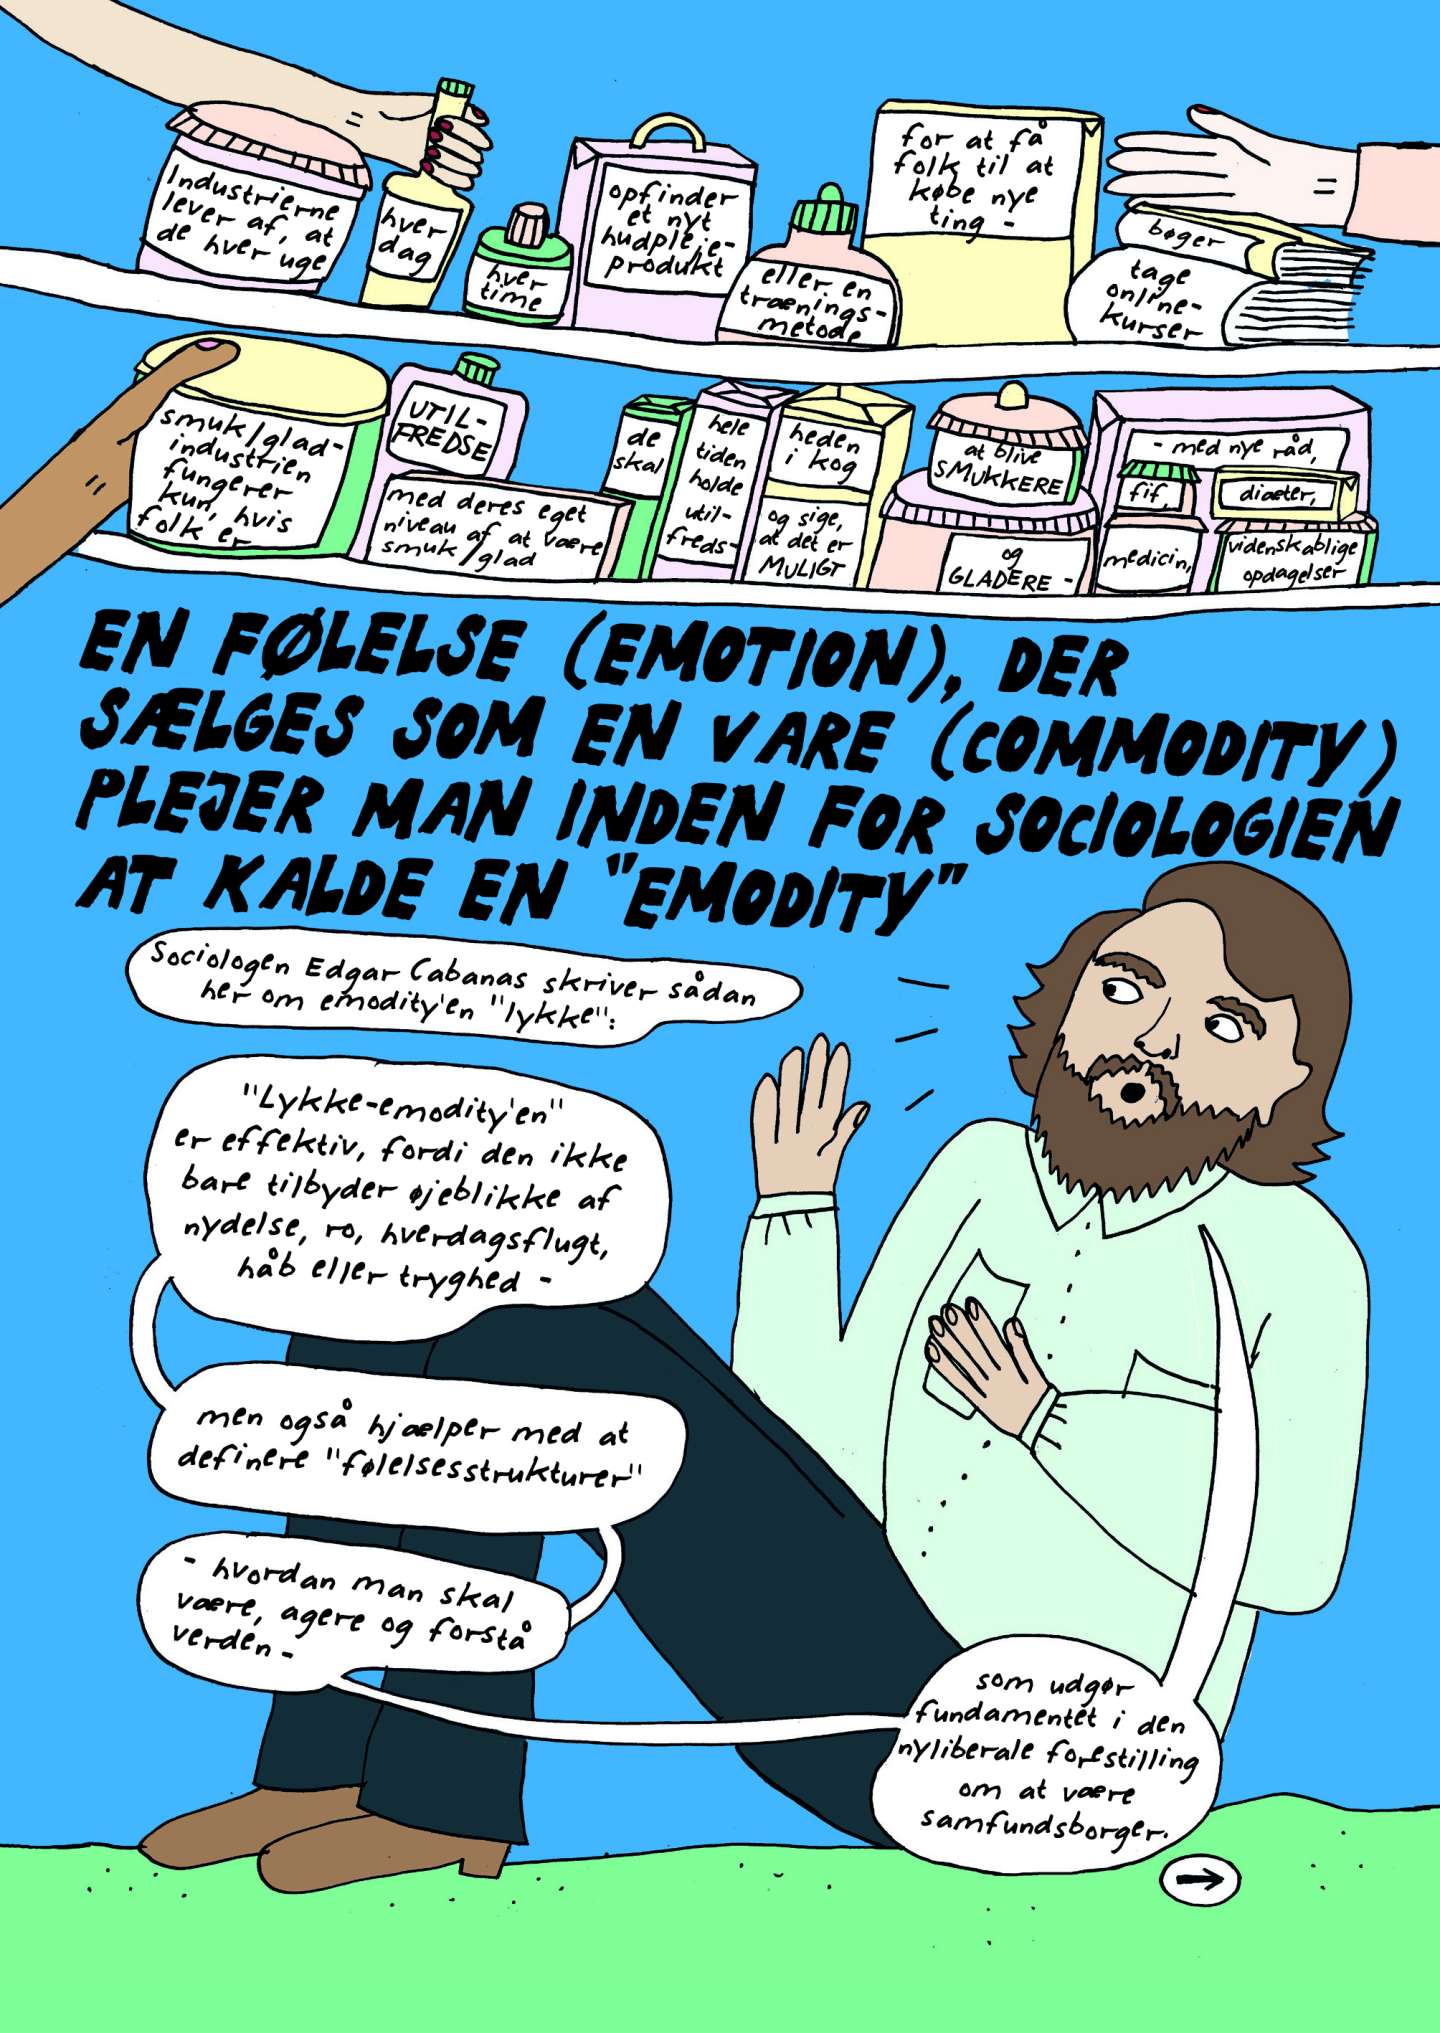 Industrierne
lever af, at
de hver uge
hver
dag
hver
time
opfinder
et nyt
hudpleje-
produkt
eller en
trænings-
metode
for at få
folk til at
købe nye
ting -
bøger
tage
online-
kurser
smuk/glad-
industrien
fungerer
kun, hvis
folk er
UTIL-
FREDSE
med deres eget
niveau af at være
smuk/glad
de
skal
hele
tiden
holde
util-
freds-
heden
i kog
og sige,
at det er
MULIGT
at blive
SMUKKERE
og
GLADERE -
- med nye råd,
fif,
diæter,
medicin,
videnskablige
opdagelser
EN FØLELSE (EMOTION), DER
SÆLGES SOM EN VARE (COMMODITY)
PLEJER MAN INDEN FOR SOCIOLOGIEN
AT KALDE EN "EMODITY"
Sociologen Edgar Cabanas skriver sådan
her om emodity'en "lykke":
"Lykke-emodity'en"
er effektiv, fordi den ikke
bare tilbyder øjeblikke af
nydelse, ro, hverdagsflugt,
håb eller tryghed -
men også hjælper med at
definere "følelsesstrukturer"
- hvordan man skal
være, agere og forstå
verden -
som udgør
fundamentet i den
nyliberale forestilling
om at være
samfundsborger.